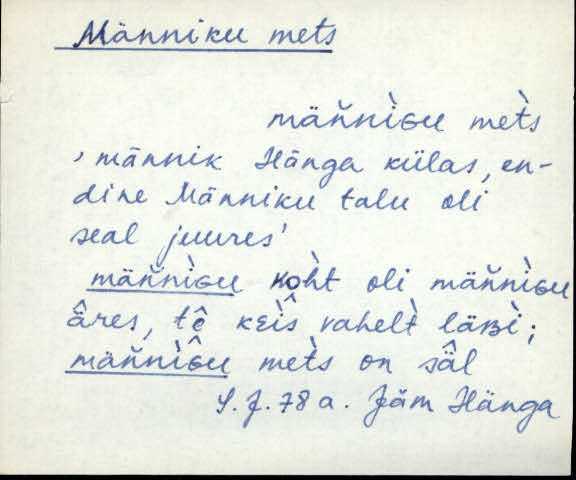 Männiku mets
män̆nìɢu mets̀
‚männik Hänga külas, en-
dine Männiku talu oli
seal juures'
män̆nìɢu koh̀t oli män̆nìɢu
ä̂res, tê keìŝ vahelt̀ läʙì;
män̆nìɢu mets̀ on sä̂l
S.J. 78 a. Jäm Hänga